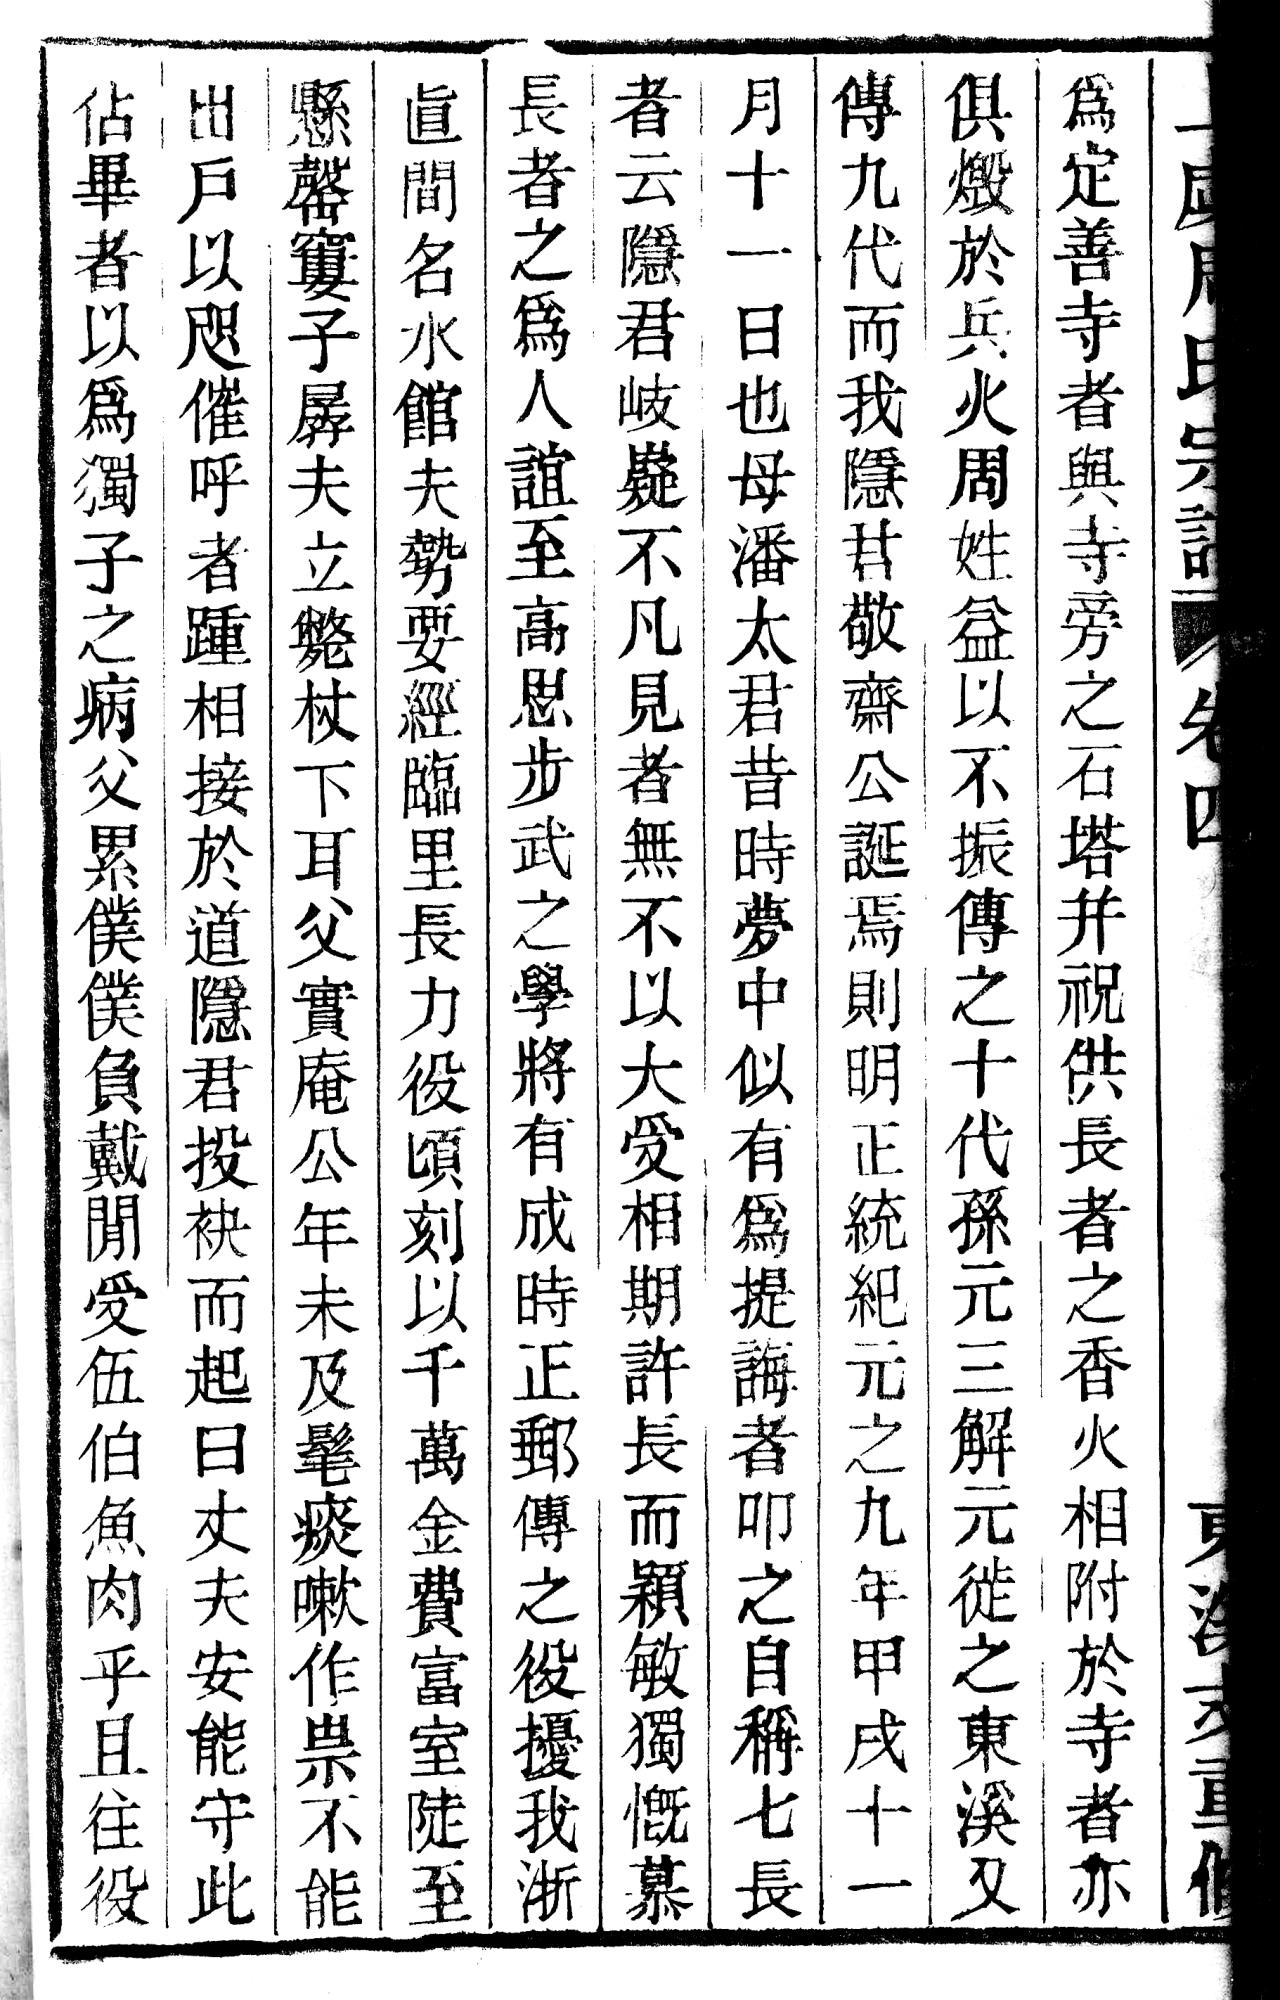 虞周氏宗譜 卷四 東溪 重修
爲定善寺者與寺旁之石塔并祝供長者之香火相附於寺者亦
俱燬於兵火周姓益以不振傳之十代孫元三解元徙之東溪又
傳九代而我隱君敬齋公誕焉則明正統紀元之九年甲戌十一
月十一日也母潘太君昔時夢中似有爲提誨者叩之自稱七長
者云隱君岐嶷不凡見者無不以大受相期許長而穎敏獨慨慕
長者之爲人誼至高思步武之學將有成時正郵傳之役擾我浙
直間名水館夫勢要經臨里長力役頃刻以千萬金費富室陡至
懸罄窶子孱夫立斃杖下耳父實庵公年未及髦痰嗽作祟不能
出戶以咫催呼者踵相接於道隱君投袂而起曰丈夫安能守此
佔畢者以爲獨子之病父累僕僕負戴閒受伍伯魚肉乎且往役